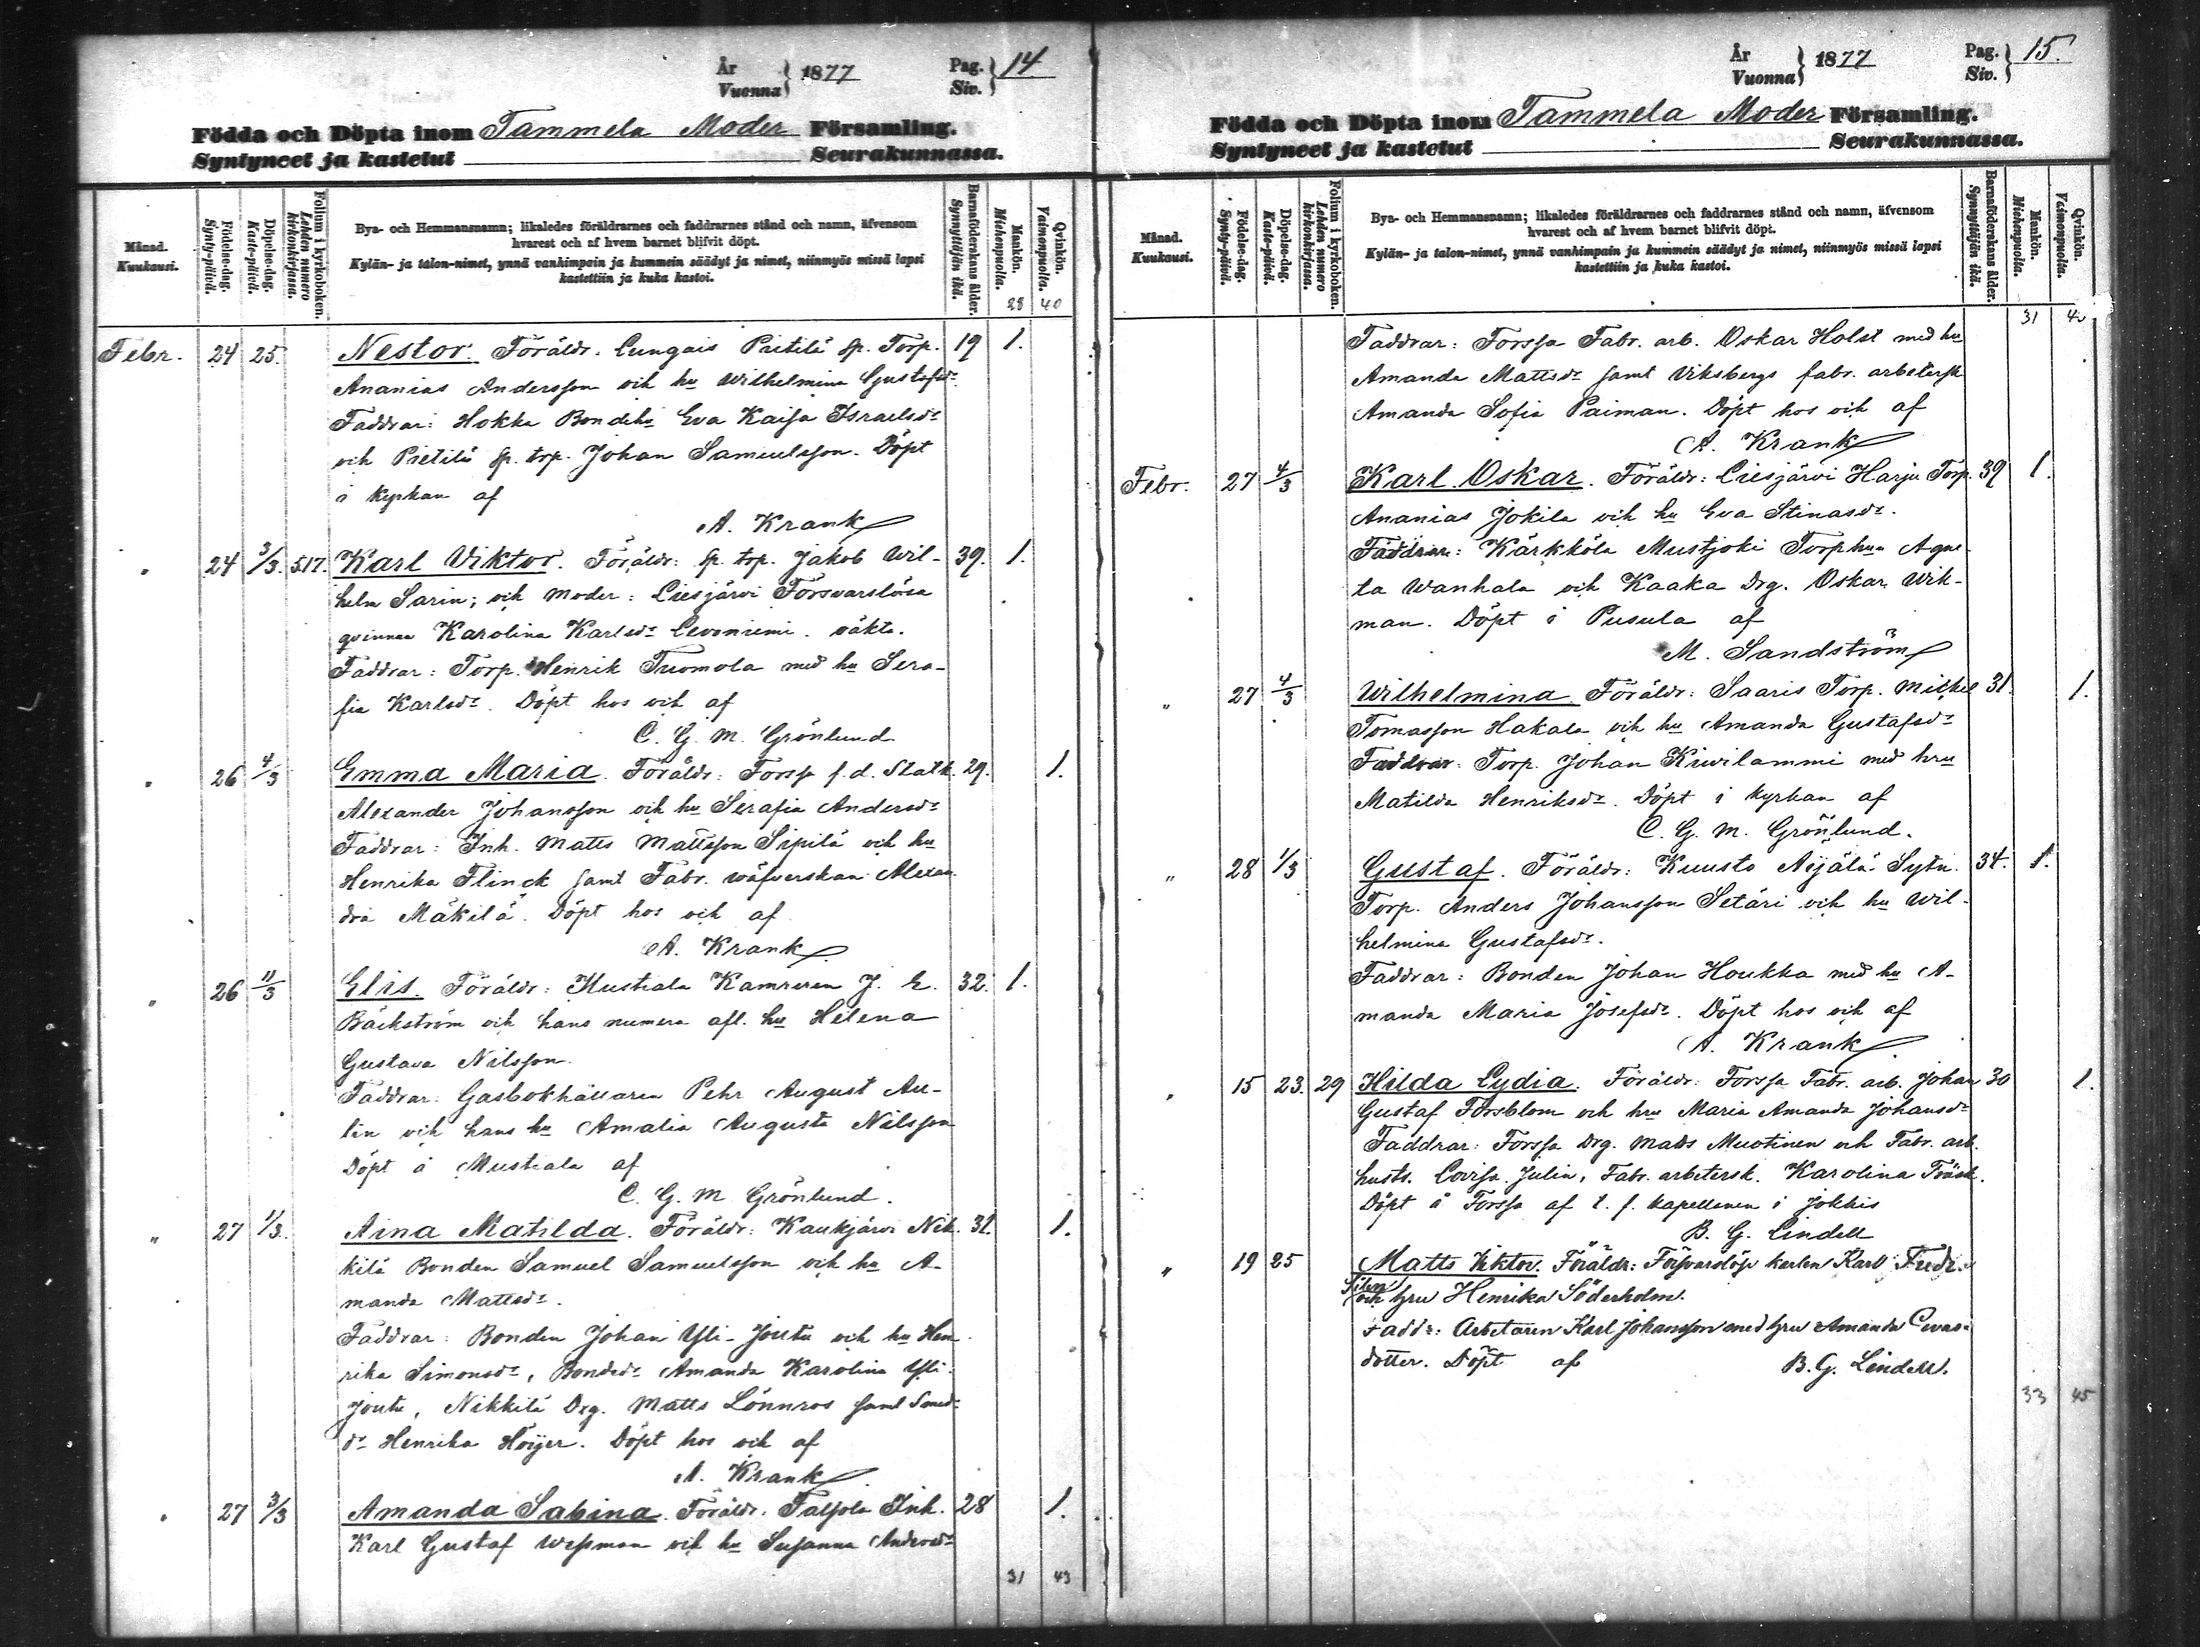 År
Vuonna } 1877 Pag.
Siv. } 14
Födda och Döpta inom Tammela Moder Församling.
Syntyneet ja kastetut Seurakunnassa.
Månad.
Kuukausi.
Födelse-dag.
Synty-päivä.
Döpelse-dag.
Kaste-päivä.
Folium i kyrkoboken.
Lehden numero kirkonkirjassa.
Bya- och Hemmansnamn; likaledes föräldrarnes och faddrarnes stånd och namn, äfvensom
hvarest och af hvem barnet blifvit döpt.
Kylän- ja talon-nimet, ynnä vanhimpain ja kummein säädyt ja nimet, niinmyös missä lapsi
kastettiin ja kuka kastoi.
Barnaföderskans ålder.
Synnyttäjän ikä.
Mankön.
Miehenpuolta.
Qvinkön.
Vaimonpuolta.
28 40
Febr. 24 25 Nestor. Föräldr. Lungais Pietilä sp. Torp. 19 1.
Ananias Andersson och hu Wilhelmina Gustafsdr
Faddrar: Hokka Bondehu Eva Kaisa Israelsdr
och Pietilä sp. torp. Johan Samuelsson. Döpt
i kyrkan af
A. Krank
" 24 3/3. 517. Karl Viktor. Föräldr: sp. torp. Jakob Wil- 39. 1.
helm Sarin; och moder: Liesjärvi Försvarslösa
qvinnan Karolina Karlsdr Levoniemi. oäkta.
Faddrar: Torp. Henrik Tuomola med hu Sera-
fia Karlsdr. Döpt hos och af
C. G. M. Grönlund
" 26 4/3 Emma Maria. Föräldr: Forssa f.d. Statk. 29. 1.
Alexander Johansson och hu Serafia Andersdr
Faddrar: Inh. Matts Mattsson Sipilä och hu
Henrika Flinck samt Fabr. wäfverskan Alexan-
dra Mäkilä. Döpt hos och af
A. Krank
" 26 11/3 Elis. Föräldr: Mustiala Kamreren J. E. 32. 1.
Bäckström och hans numera afl. hu Helena
Gustava Nilsson.
Faddrar: Gasbokhållaren Pehr August Au-
lin och hans hu Amalia Augusta Nilsson
Döpt å Mustiala af
C. G. M Grönlund.
" 27 1/3. Aina Matilda. Föräldr: Kaukjärvi Nik- 31. 1.
kilä Bonden Samuel Samuelsson och hu A-
manda Mattsdr.
Faddrar: Bonden Johan Yli-Joutu och hu Hen-
rika Simonsdr, Bondedr Amanda Karolina Yli-
Joutu, Nikkilä Drg. Matts Lönnros samt Smed-
dr Henrika Höijer. Döpt hos och af
A. Krank
" 27 3/3 Amanda Sabina. Föräldr: Talpola Inh. 28 1.
Karl Gustaf Wessman och hu Susanna Andersdr
31 43
År
Vuonna } 1877 Pag.
Siv. } 15.
Födda och Döpta inom Tammela Moder Församling.
Syntyneet ja kastetut Seurakunnassa.
Månad.
Kuukausi.
Födelse-dag.
Synty-päivä.
Döpelse-dag.
Kaste-päivä.
Folium i kyrkoboken.
Lehden numero kirkonkirjassa.
Bya- och Hemmansnamn; likaledes föräldrarnes och faddrarnes stånd och namn, äfvensom
hvarest och af hvem barnet blifvit döpt.
Kylän- ja talon-nimet, ynnä vanhimpain ja kummein säädyt ja nimet, niinmyös missä lapsi
kastettiin ja kuka kastoi.
Barnaföderskans ålder.
Synnyttäjän ikä.
Mankön.
Miehenpuolta.
Qvinkön.
Vaimonpuolta.
31
Faddrar: Forssa Fabr. arb. Oskar Holst med hu
Amanda Mattsdr samt Viksbergs fabr. arbetersk
Amanda Sofia Paiman. Döpt hos och af
A. Krank
Febr. 27 4/3 Karl Oskar. Föräldr: Liesjärvi Harju Torp. 39 1.
Ananias Jokila och hu Eva Stinasdr.
Faddrar: Kärkkölä Mustjoki Torphun Agne-
ta Wanhala och Kaaka Drg. Oskar Wik-
man. Döpt i Pusula af
M. Sandström
" 27 4/3 Wilhelmina. Föräldr: Saaris Torp. Mikkel 31. 1.
Tomasson Hakala och hu Amanda Gustafsdr
Faddrar: Torp. Johan Kiwilammi med hru
Matilda Henriksdr. Döpt i kyrkan af
C. G. M. Grönlund.
" 28 1/3 Gustaf. Föräldr: Kuusto Äijälä Sytn. 34. 1.
Torp. Anders Johansson Setäri och hu Wil-
helmina Gustafsdr.
Faddrar: Bonden Johan Houkka med hu A-
manda Maria Josefsdr. Döpt hos och af
A. Krank
" 15 23. 29 Hilda Lydia. Föräldr: Forssa Fabr. arb. Johan 30 1.
Gustaf Forsblom och hru Maria Amanda Johansdr
Faddrar: Forssa Drg. Matts Muotinen och Fabr. arb.
husts. Lovisa Julin, Fabr. arbetersk. Karolina Träsk.
Döpt å Forssa af t. f. kapellanen i Jokkis
B. G. Lindell
" 19 25 Matts Viktor. Föräldr: Försvarslöse karlen Karl Fredr.
Silen
och hru Henrika Söderholm.
Faddr: Arbetaren Karl Johansson med hru Amanda Evas-
dotter. Döpt af B. G. Lindell.
33 45